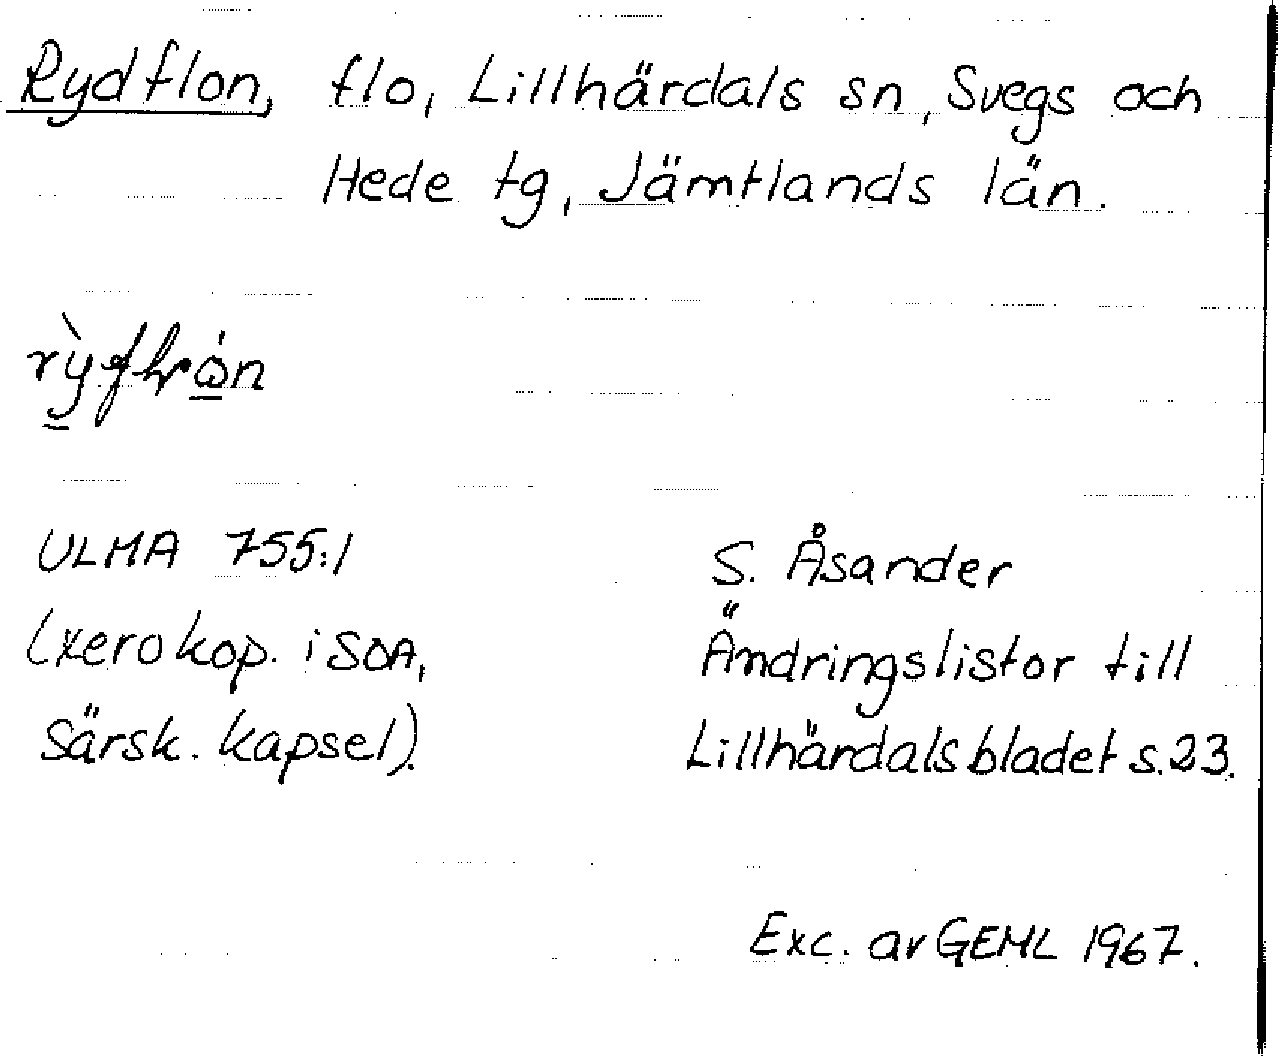 Rydflon, flo, Lillhärdals sn, Svegs och
Hede tg, Jämtlands län.
ULMA 755:1
(xerokop. i SOA,
särsk. kapsel).
S. Åsander
Ändringslistor till
Lillhärdalsbladet s. 23.
Exc. av GEML 1967.